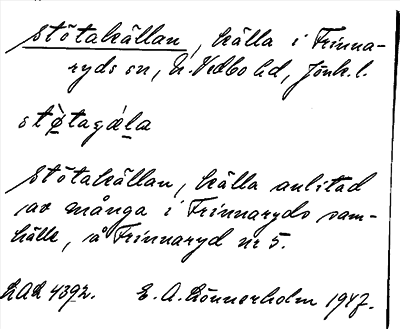 Stötakällan, källa i Frinna-
ryds sn, N. Vedbo hd, Jönk. l.
stø̀tagǽla
Stötakällan, källa anlitad
av många i Frinnaryds sam-
hälle, å Frinnaryd nr 5.
LAL 4392. E. A. Lönnerholm 1947.